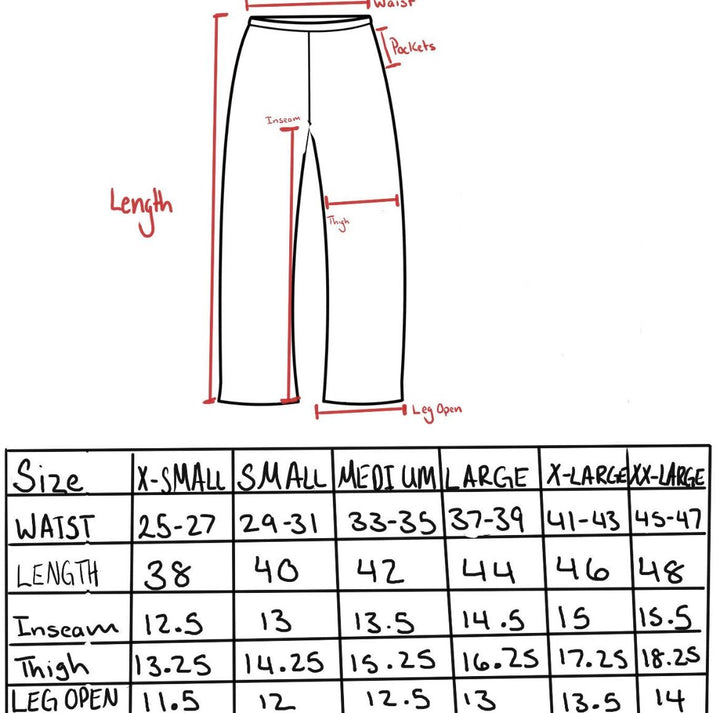 Waist
Pockets
Inseam
Length
Thigh
Leg Open
Size X-SMALL SMALL MEDIUM LARGE X-LARGE XX-LARGE
WAIST 25-27 29-31 33-35 37-39 41-43 45-47
LENGTH 38 40 42 44 46 48
Inseam 12.5 13 13.5 14.5 15 15.5
Thigh 13.25 14.25 15.25 16.25 17.25 18.25
LEG OPEN 11.5 12 12.5 13 13.5 14